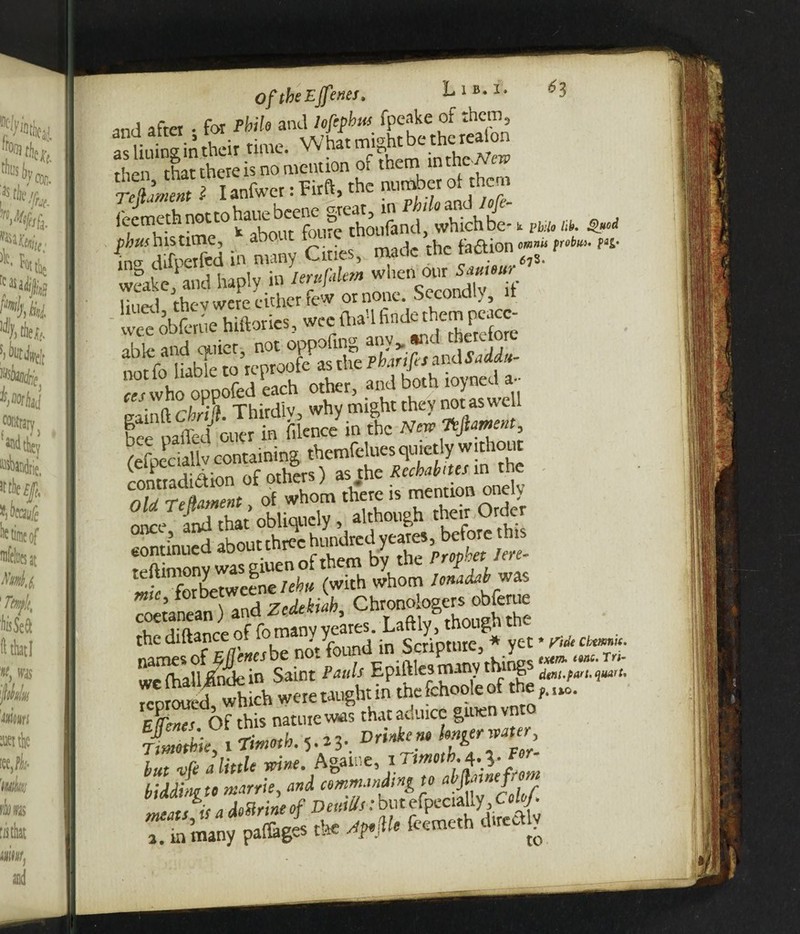 Of the Eſſenes. LIB. I. 63
and after : for Philo and Ioſephus ſpeake of them,
as liuing in their time. What might be the reaſon
then, that there is no mention of them in the New
Teſtament ? I anſwer : Firſt, the number of them
ſeemeth not to haue beene great, in Philo and Ioſe-
phus his time, k about foure thouſand, which be-
ing diſperſed in many Cities, made the faction
weake, and haply in Ieruſalem when our Sauiour
liued, they were either few or none. Secondly, if
wee obſerue hiſtories, wee ſhall finde them peace-
able and quiet, not oppoſing any, and therefore
not ſo liable to reproofe as the Phariſes and Saddu-
ces who oppoſed each other, and both ioyned a-
gainſt Chriſt. Thirdly, why might they not as well
bee paſſed ouer in ſilence in the New Teſtament,
(eſpecially containing themſelues quietly without
contradiction of others) as the Rechabites in the
Old Teſtament, of whom there is mention onely
once, and that obliquely, although their Order
continued about three hundred yeares, before this
teſtimony was giuen of them by the Prophet Iere-
mie, for betweene Iehu (with whom Ionadab was
coetanean) and Zedekiah, Chronologers obſerue
the diſtance of ſo many yeares. Laſtly, though the
names of Eſſenes be not found in Scripture, * yet
we ſhall finde in Saint Pauls Epiſtles many things
reproued, which were taught in the ſchoole of the
Eſſenes. Of this nature was that aduice giuen vnto
Timothie, 1 Timoth. 5. 23. Drinke no longer water,
but vſe a little wine. Againe, 1 Timoth. 4. 3. For-
bidding to marrie, and commanding to abſtaine from
meats, is a doctrine of Deuills : but eſpecially, Coloſ.
2. in many paſſages the Apoſtle ſeemeth directly
to
k Philo lib. Quod
omnis probus. pag.
678.
* Vide Chemnic.
exam. conc. Tri-
dent. part. quart.
p. 120.